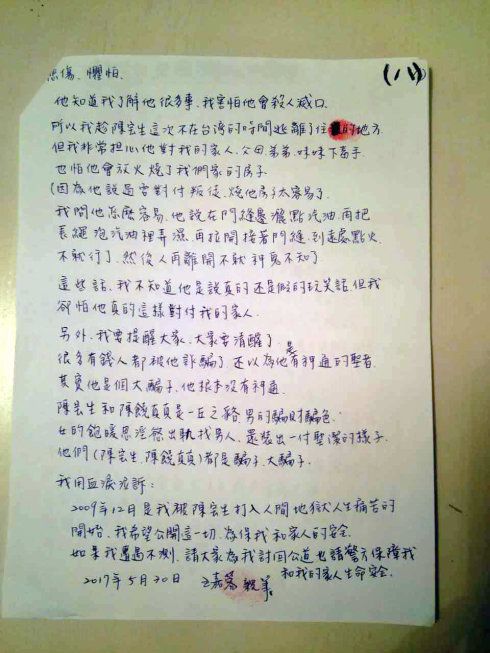 悲傷、懼怕.
(八)
他知道我了解他很多事,我害怕他會殺人滅口.
所以我趁陳宏生這次不在台灣的時間逃離了住的地方.
但我非常担心他對我的家人,父母弟弟、妹妹下毒手.
也怕他會放火燒了我們家的房子.
(因為他說過要對付叛徒,燒他房子太容易了.
我問他怎麼容易.他說在門縫邊灑點汽油,再把
長繩泡汽油裡弄濕,再拉開接著門縫,到遠處點火.
不就行了.然後人再離開不就神鬼不知了.
這些話、我不知道他是說真的还是假的玩笑話但我
卻怕他真的這樣對付我的家人.
另外、我要提醒大家、大家要清醒了.
很多有錢人都被他詐騙了还以為他是有神通的聖者.
其實他是個大騙子.他根本沒有神通.
陳宏生和陳饒真真是一丘之貉.男的騙財騙色.
女的飽暖思淫慾出軌找男人.還裝出一付聖潔的樣子.
他們(陳宏生.陳饒真真)都是騙子.大騙子.
我用血淚泣訴:
2009年12月是我被陳宏生打入人間地獄人生痛苦的
開始.我希望公開這一切.為保我和家人的安全.
如果我遭遇不測.請大家為我討回公道也請警方保障我
和我的家人生命安全.
2017年5月30日